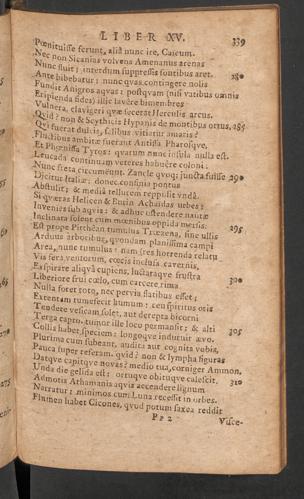 LIBER XV. 339
Pœnituisse ferunt, aliâ nunc ire, Caicum.
Nec non Sicanias volvens Amenanus arenas
Nunc fluit; interdum suppressis fontibus aret. 280
Ante bibebatur; nunc quas contingere nolis
Fundit Anigros aquas: postquam (nisi vatibus omnis
Eripienda fides) illic lavêre bimembres
Vulnera, clavigeri quæ fecerat Herculis arcus.
Quid? non & Scythicis Hypanis de montibus ortus, 285
Qui fuerat dulcis, salibus vitiatur amaris?
Fluctibus ambitæ fuerant Antissa Pharosque,
Et Phœnissa Tyros: quarum nunc insula nulla est.
Leucada continuam veteres habuêre coloni:
Nunc freta circumëunt. Zancle quoq; juncta fuisse 290
Dicitur Italiæ: donec confinia pontus
Abstulit; & mediâ tellurem reppulit undâ.
Si quæras Helicen & Burin Achaïdas urbes:
Invenies sub aquis: & adhuc ostendere nautæ
Inclinata solent cum mœnibus oppida mersis. 295
Est prope Pittheän tumulus Trœzena, sine ullis
Arduus arboribus, quondam planissima campi
Area, nunc tumulus: nam (res horrenda relatu)
Vis fera ventorum, cœcis inclusa cavernis,
Exspirare aliquâ cupiens, luctataque frustra 300
Liberiore frui cœlo, cum carcere rima
Nulla foret toto, nec pervia flatibus esset;
Extentam tumefecit humum: ceu spiritus oris
Tendere vesicam solet, aut derepta bicorni
Terga capro. tumor ille loco permansit; & alti 305
Collis habet speciem: longoque indurüit ævo.
Plurima cum subeant, audita aut cognita vobis,
Pauca super referam. quid? non & lympha figuras
Datque capitque novas? medio tua, corniger Ammon,
Unda die gelida est: ortuque obituque calescit. 310
Admotis Athamania aquis accendere lignum
Narratur: minimos cum Luna recessit in orbes.
Flumen habet Cicones, quod potum saxea reddit
Pp2 Visce-